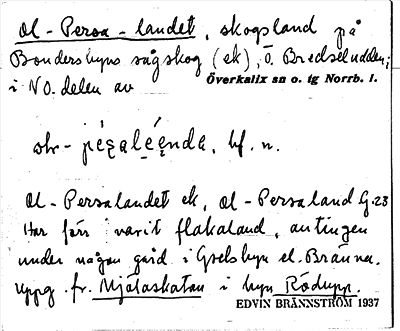 Ol-Persa-landet, skogsland på
Bondersbyns sågskog (ek), ö. Bredseludden,
i NO. delen av Överkalix sn o. tg Norrb. l.
hf. n.
Ol-Persalandet ek, Ol-Persaland G.23
Har förr varit flakaland, antingen
under någon gård i Grelsbyn el. Bränna.
Uppg. fr. Mjölaskatan i byn Rödupp.
EDVIN BRÄNNSTRÖM 1937